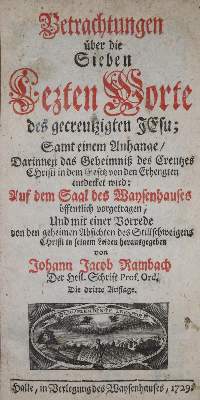 Betrachtungen
über die
Sieben
Lezten Worte
des gecreutzigten JEsu;
Samt einem Anhange/
Darinnen das Geheimniß des Creutzes
CHristi in dem Gesetz von den Erhengten
entdecket wird:
Auf dem Saal des Waysenhauses
öffentlich vorgetragen,
Und mit einer Vorrede
von den geheimen Absichten des Stillschweigens
Christi in seinem Leiden herausgegeben
von
Johann Jacob Rambach
Der Heil. Schrift Prof. Ord.
Die dritte Auflage.
Halle, in Verlegung des Waysenhauses, 1729.